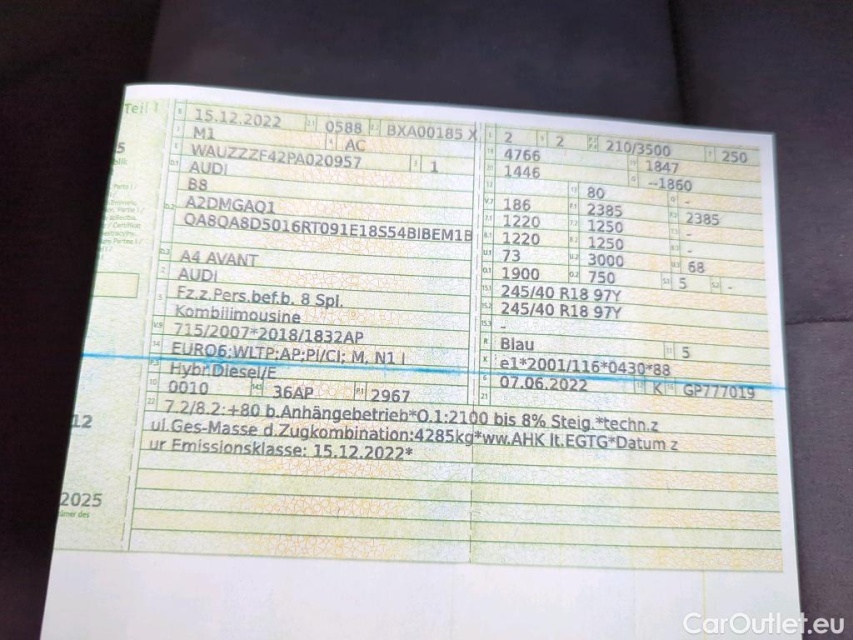 Teil I
15.12.2022 0588 BXA00185 X
M1 AC
WAUZZZF42PA020957 1
AUDI
B8
A2DMGAQ1
QA8QA8D5016RT091E18S54BIBEM1B
A4 AVANT
AUDI
Fz.z.Pers.bef.b. 8 Spl.
Kombilimousine
715/2007*2018/1832AP
EURO6;WLTP;AP;PI/CI; M, N1 I
Hybr.Diesel/E
0010 36AP 2967
2 2 210/3500 250
4766 1847
1446 --1860
- 80 -
186 2385 2385
1220 1250 -
1220 1250 -
73 3000 68
1900 750 5 -
245/40 R18 97Y
245/40 R18 97Y
-
Blau 5
e1*2001/116*0430*88
07.06.2022 K GP777019
7.2/8.2:+80 b.Anhängebetrieb*O.1:2100 bis 8% Steig.*techn.z
ul.Ges-Masse d.Zugkombination:4285kg*ww.AHK lt.EGTG*Datum z
ur Emissionsklasse: 15.12.2022*
5
12
2025
CarOutlet.eu